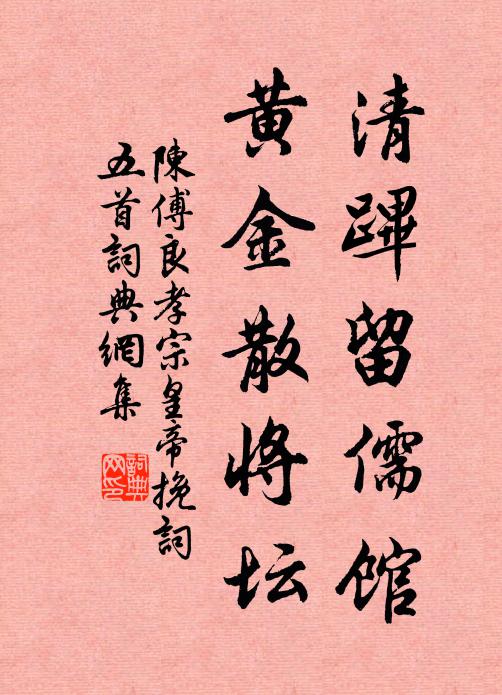 清蹕留儒馆
黄金散将坛
陳傅良孝宗皇帝挽詞
五首詞典網集
詞典网印